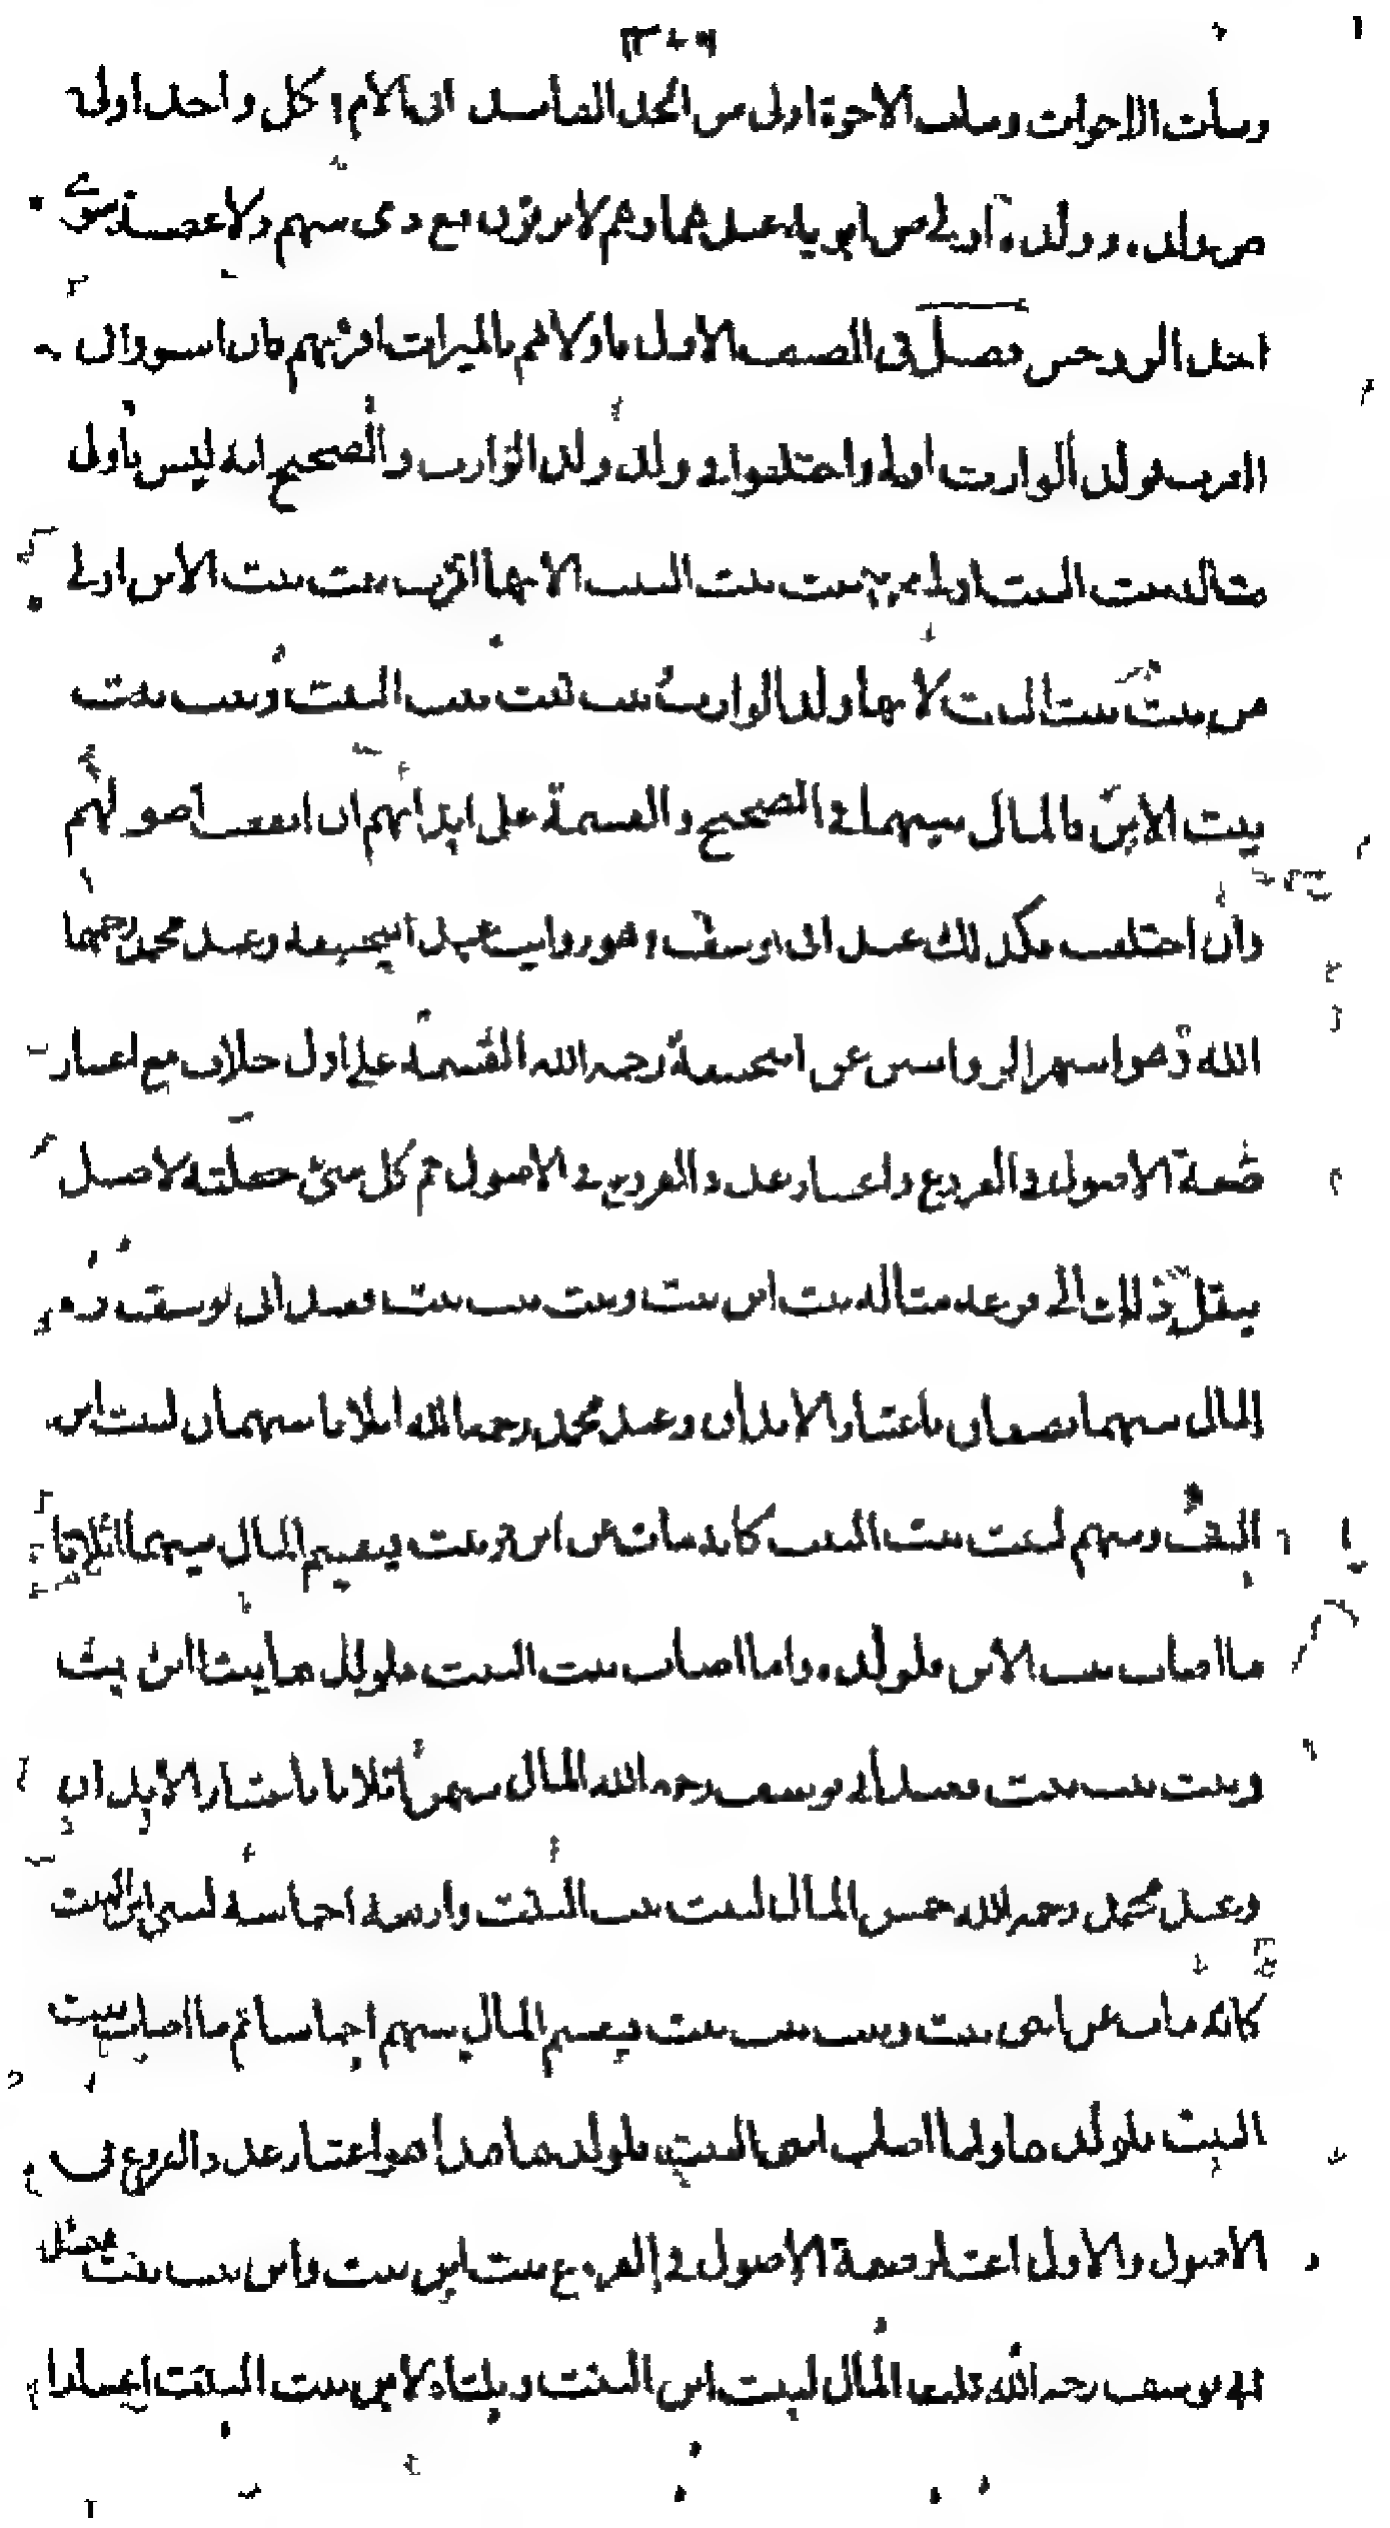 وبنات الاخوات وبنات الاخوة اولى من الجد الفاسد ابى الام كل واحد اولى
من ولده وولده اولى من ابويه عندهما وهم لا يرثون مع ذى سهم ولا عصبة سوى
احد الزوجين فصل فى الصنف الاول فاولاهم بالميراث اقربهم فان استووا فى
القرب فولد الوارث اولى واختلفوا فى ولد ولد الوارث والصحيح انه ليس باولى
مثاله بنت البنت اولى من بنت بنت البنت لانها اقرب بنت بنت الابن اولى
من بنت بنت البنت لانها ولد الوارث بنت بنت بنت البنت وبنت بنت
بنت الابن فالمال بينهما فى الصحيح والقسمة على ابدانهم ان اتفقت اصولهم
وان اختلفت فكذلك عند ابى يوسف وهو رواية عن ابيحنيفة وعند محمد رحمهما
الله وهو اشهر الروايتين عن ابيحنيفة رحمه الله القسمة على اول خلاف مع اعتبار
صفة الاصول فى الفروع واعتبار عدد الفروع فى الاصول ثم كل شئ جعلته لاصل
ينقل ذلك الى فرعه مثاله بنت ابن بنت وبنت بنت بنت فعند ابى يوسف ره
المال بينهما نصفان باعتبار الابدان وعند محمد رحمه الله اثلاثا سهمان لبنت ابن
البنت وسهم لبنت بنت البنت كانه مات عن ابن وبنت فيقسم المال بينهما اثلاثا
ما اصاب بنت الابن فلولده واما اصاب بنت البنت فلولدها ابنتا ابن بنت
وبنت بنت بنت فعند ابى يوسف رحمه الله المال بينهن اثلاثا باعتبار الابدان
وعند محمد رحمه الله خمس المال لبنت بنت البنت واربعة اخماسه لبنتى ابن البنت
كانه مات عن ابنى بنت وبنت بنت فيقسم المال بينهم اخماسا ثم ما اصاب بنت
البنت فلولدها وما اصاب ابنى البنت فلولدهما هذا هو اعتبار عدد الفروع فى
الاصول والاول اعتبار صفة الاصول فى الفروع بنت ابن بنت وابن بنت بنت فعند
ابى يوسف رحمه الله ثلث المال لبنت ابن البنت وثلثاه لابن بنت البنت اعتبارا